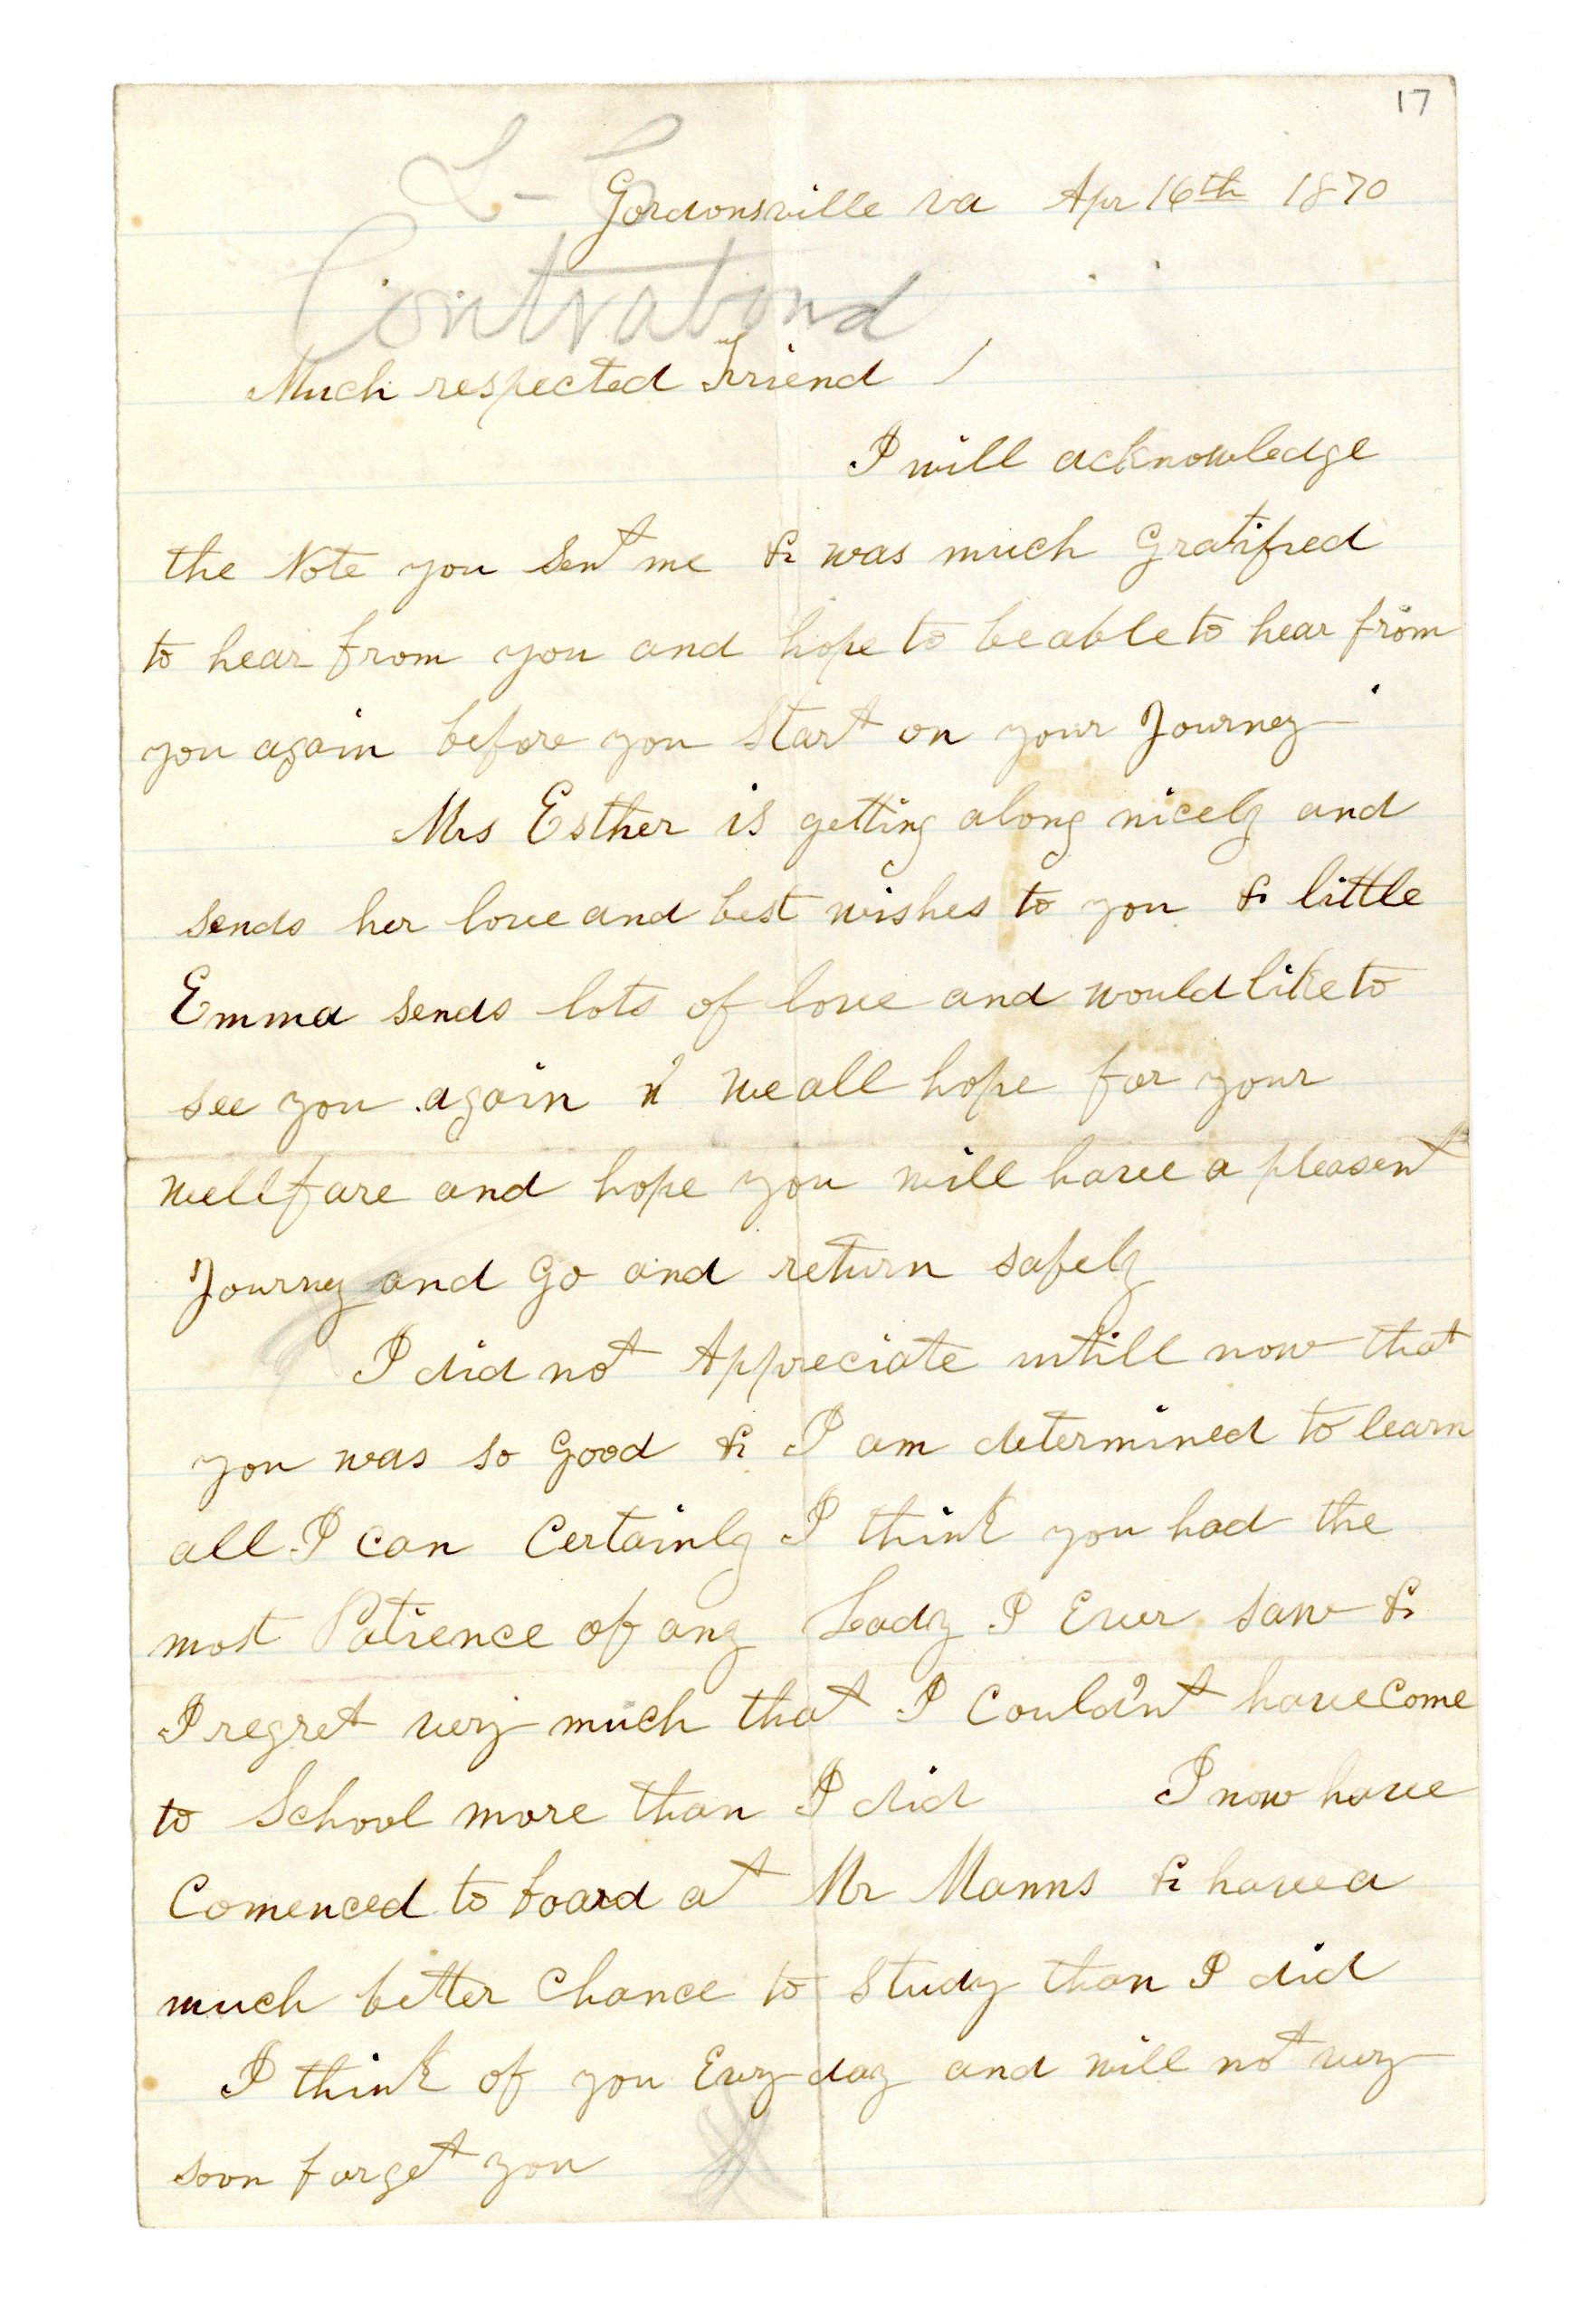 17
L-
Gordonsville va Apr 16th 1870
Contraband
Much respected Friend /
I will acknowledge
the Note you sent me & was much Gratified
to hear from you and hope to be able to hear from
you again before you start on your Journey
Mrs Esther is getting along nicely and
sends her love and best wishes to you & little
Emma sends lots of love and would like to
see you again We all hope for your
wellfare and hope you will have a pleasent
Journey and Go and return safely
I did not Appreciate untill now that
you was so Good & I am determined to learn
all I can Certainly I think you had the
most Patience of any Lady I Ever saw &
I regret very much that I Could'nt have Come
to School more than I did I now have
Comenced to board at Mr Manns & have a
much better Chance to study than I did
I think of you Evry day and will not very
soon forget you